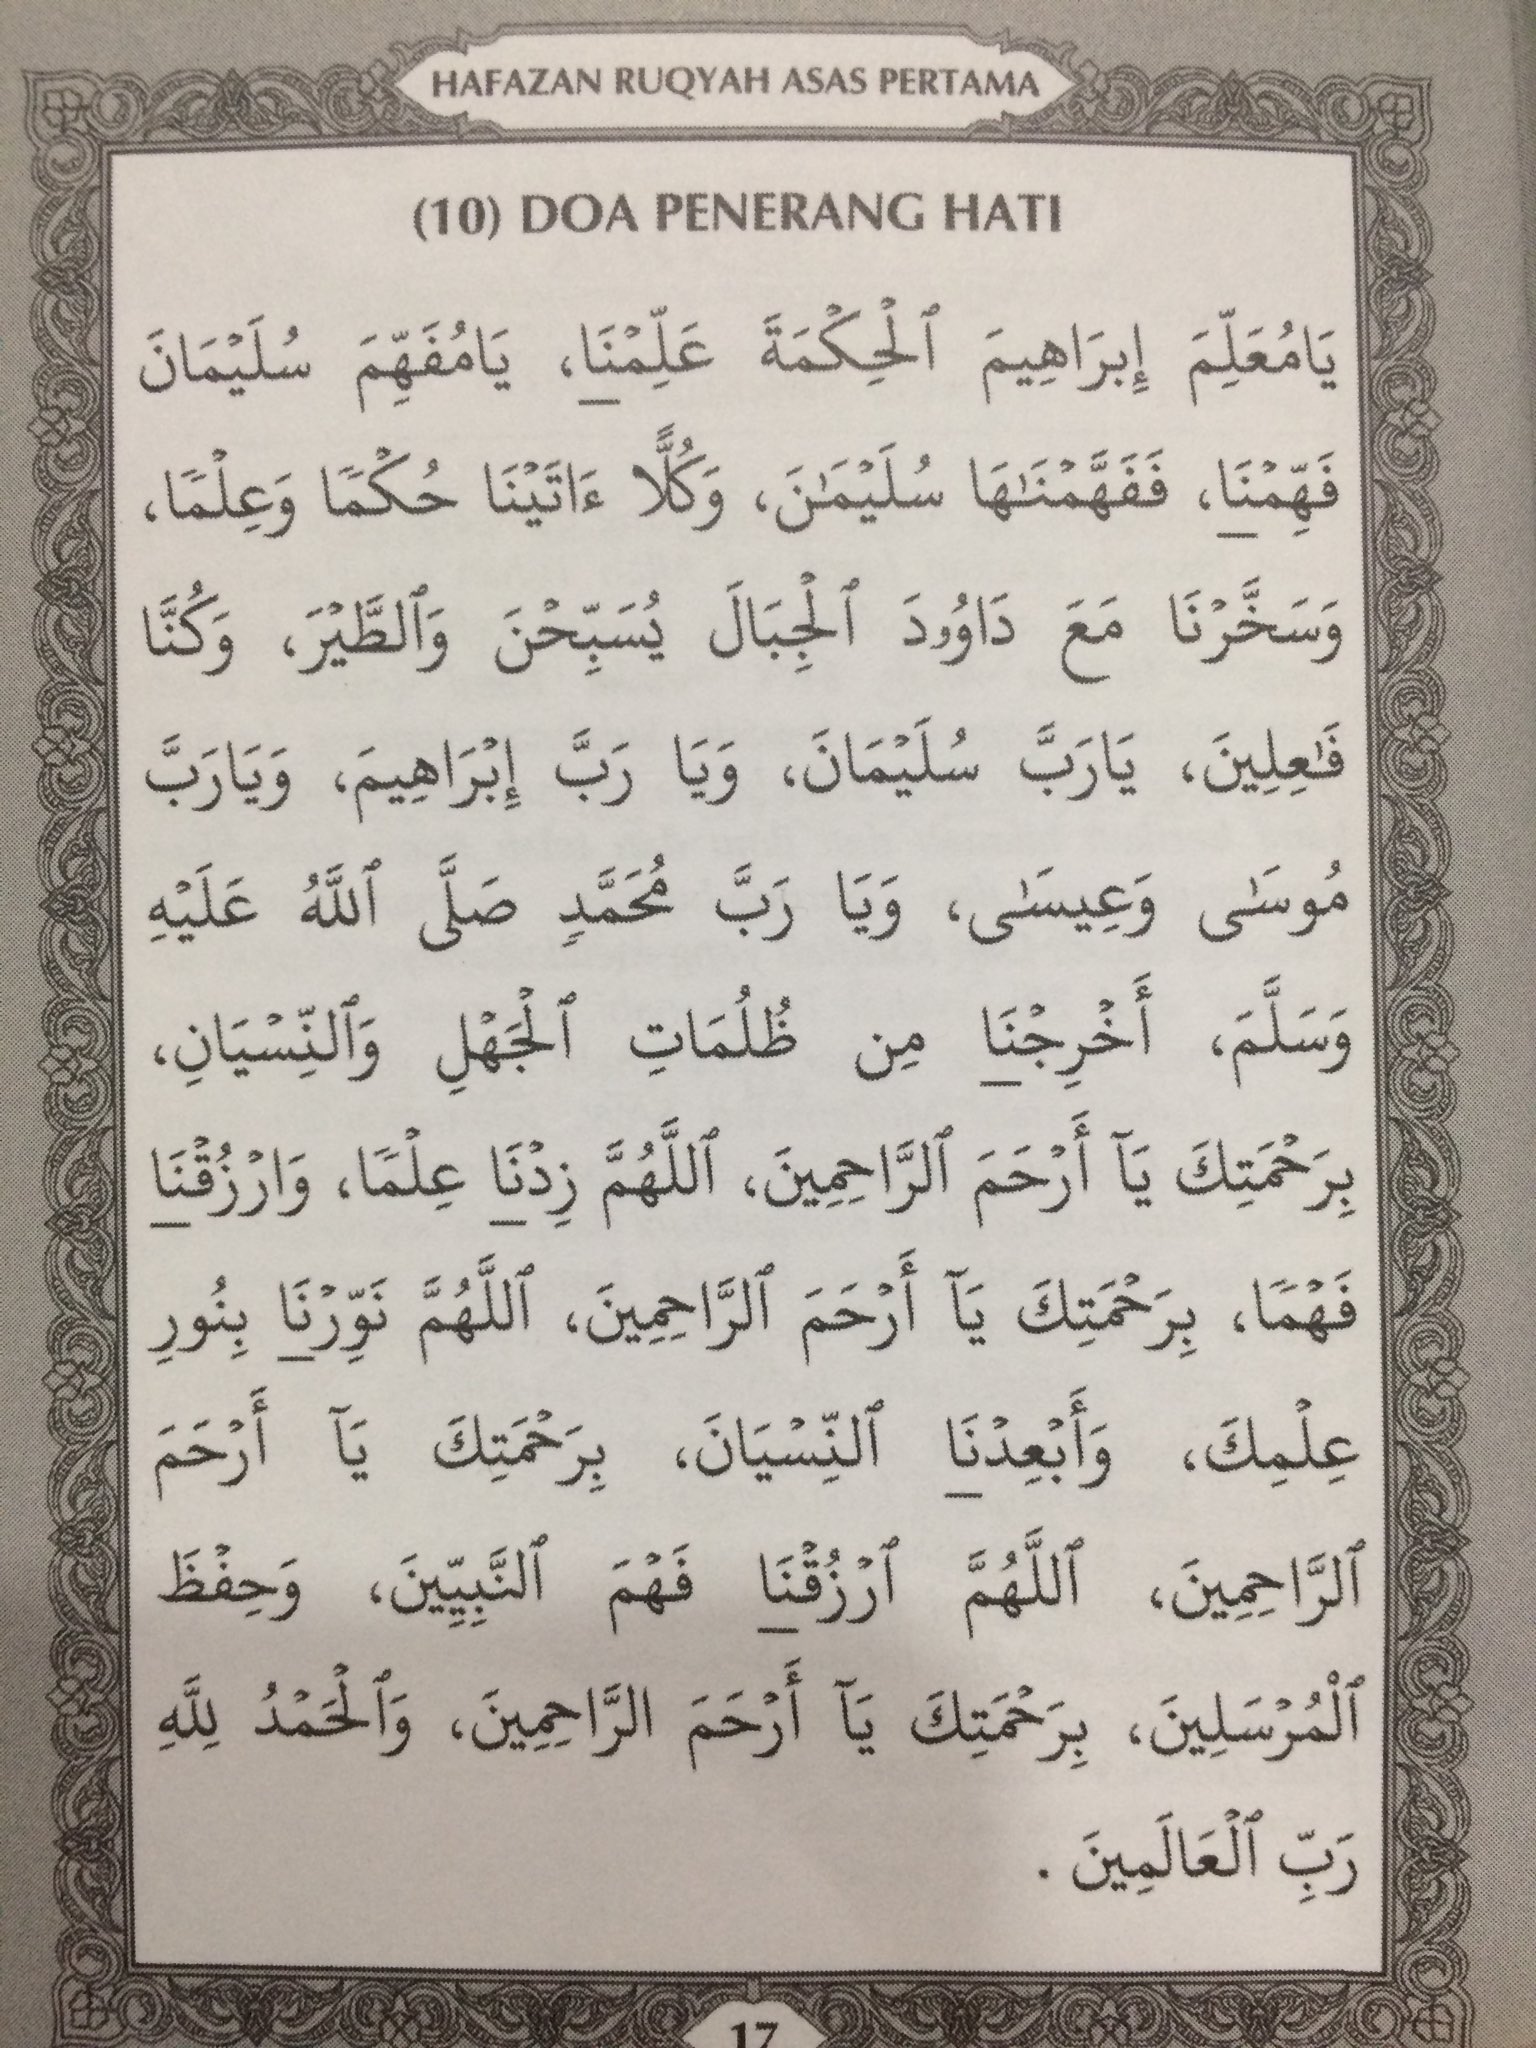 HAFAZAN RUQYAH ASAS PERTAMA
(10) DOA PENERANG HATI
يَامُعَلِّمَ إِبرَاهِيمَ ٱلْحِكْمَةَ عَلِّمْنَا، يَامُفَهِّمَ سُلَيْمَانَ
فَهِّمْنَا، فَفَهَّمْنَٰهَا سُلَيْمَٰنَ، وَكُلًّا ءَاتَيْنَا حُكْمًا وَعِلْمًا،
وَسَخَّرْنَا مَعَ دَاوُۥدَ ٱلْجِبَالَ يُسَبِّحْنَ وَٱلطَّيْرَ، وَكُنَّا
فَٰعِلِينَ، يَارَبَّ سُلَيْمَانَ، وَيَا رَبَّ إِبْرَاهِيمَ، وَيَارَبَّ
مُوسَٰى وَعِيسَٰى، وَيَا رَبَّ مُحَمَّدٍ صَلَّى ٱللَّهُ عَلَيْهِ
وَسَلَّمَ، أَخْرِجْنَا مِن ظُلُمَاتِ ٱلْجَهْلِ وَٱلنِّسْيَانِ،
بِرَحْمَتِكَ يَآ أَرْحَمَ ٱلرَّاحِمِينَ، ٱللَّهُمَّ زِدْنَا عِلْمًا، وَارْزُقْنَا
فَهْمًا، بِرَحْمَتِكَ يَآ أَرْحَمَ ٱلرَّاحِمِينَ، ٱللَّهُمَّ نَوِّرْنَا بِنُورِ
عِلْمِكَ، وَأَبْعِدْنَا ٱلنِّسْيَانَ، بِرَحْمَتِكَ يَآ أَرْحَمَ
ٱلرَّاحِمِينَ، ٱللَّهُمَّ ٱرْزُقْنَا فَهْمَ ٱلنَّبِيِّينَ، وَحِفْظَ
ٱلْمُرْسَلِينَ، بِرَحْمَتِكَ يَآ أَرْحَمَ الرَّاحِمِينَ، وَٱلْحَمْدُ لِلَّهِ
رَبِّ ٱلْعَالَمِينَ .
17